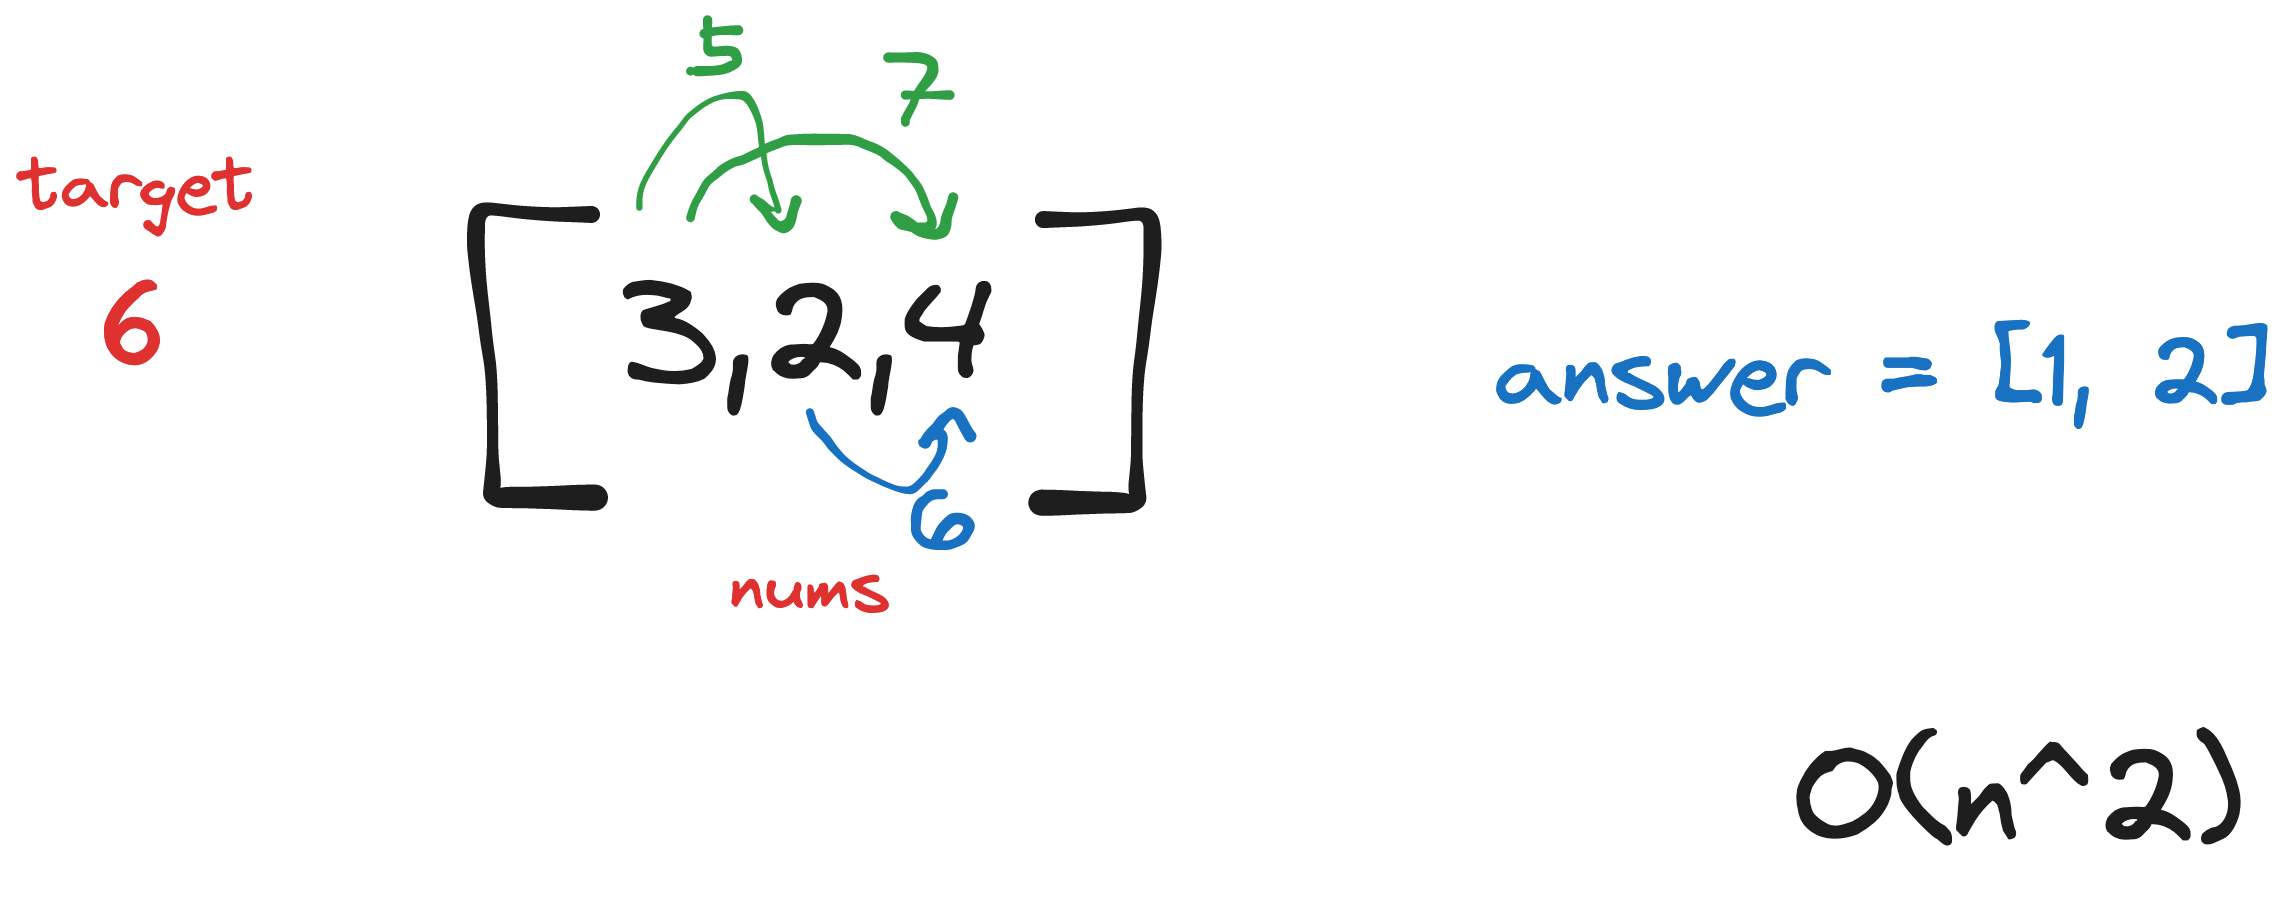 5
7
target
6
[3,2,4]
6
nums
answer = [1, 2]
O(n^2)